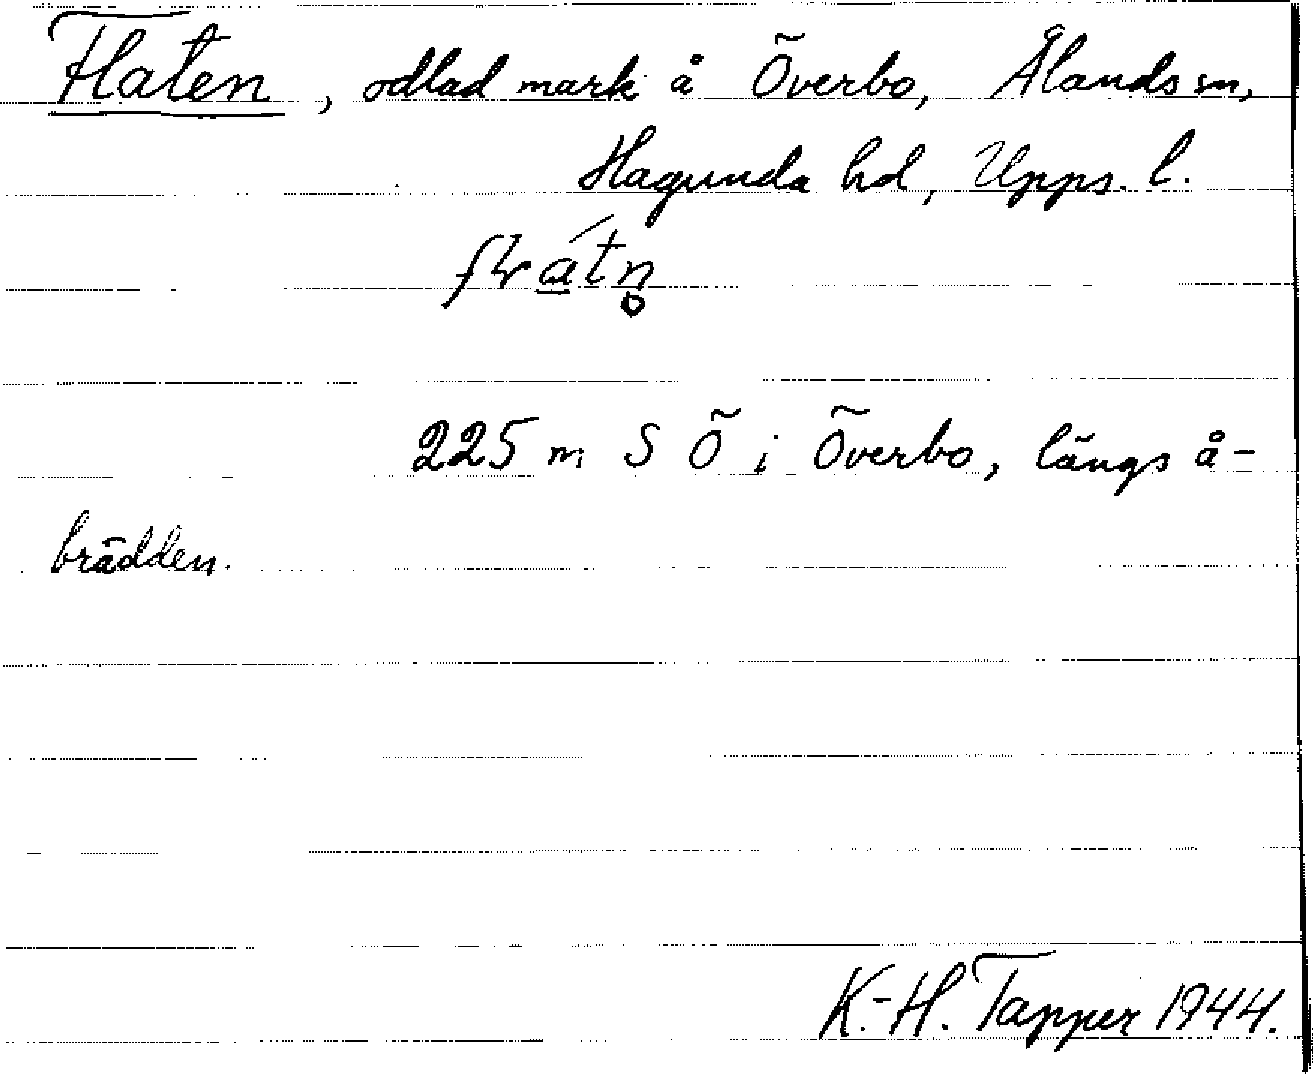 Flaten, odlad mark å Överbo, Ålands sn,
Hagunda hd, Upps. l.
225 m S Ö i Överbo, längs å-
brädden.
K.-H. Tapper 1944.